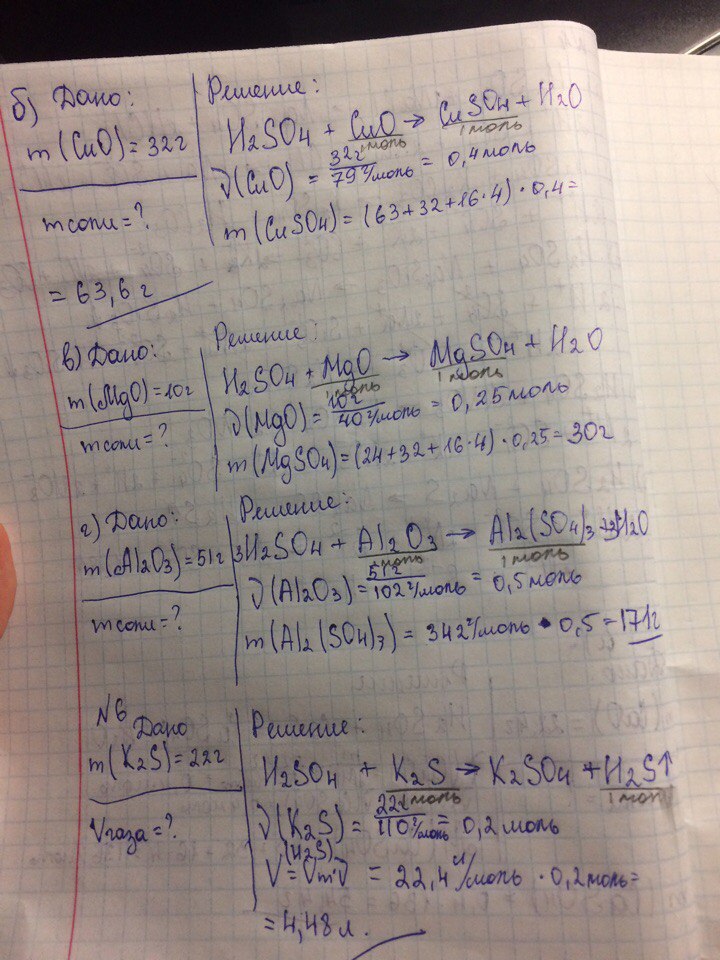 б) Дано:
m(CuO)=32г
m соли=?
Решение:
H2SO4 + CuO → CuSO4 + H2O
1моль 1моль
ν(CuO) = 32г/79г/моль = 0,4моль
m(CuSO4) = (63+32+16·4)·0,4=
= 63,6 г
в) Дано:
m(MgO)=10г
m соли=?
Решение:
H2SO4 + MgO → MgSO4 + H2O
1моль 1моль
ν(MgO) = 10г/40г/моль = 0,25моль
m(MgSO4)=(24+32+16·4)·0,25=30г
г) Дано:
m(Al2O3)=51г
m соли=?
Решение:
3H2SO4 + Al2O3 → Al2(SO4)3 + 3H2O
1моль 1моль
ν(Al2O3)= 51г/102г/моль = 0,5моль
m(Al2(SO4)3) = 342г/моль · 0,5 = 171г
№6
Дано
m(K2S)=22г
Vгаза=?
Решение:
H2SO4 + K2S → K2SO4 + H2S↑
1моль 1моль
ν(K2S) = 22г/110г/моль = 0,2моль
V(H2S)=Vm·ν = 22,4л/моль · 0,2моль=
= 4,48 л.